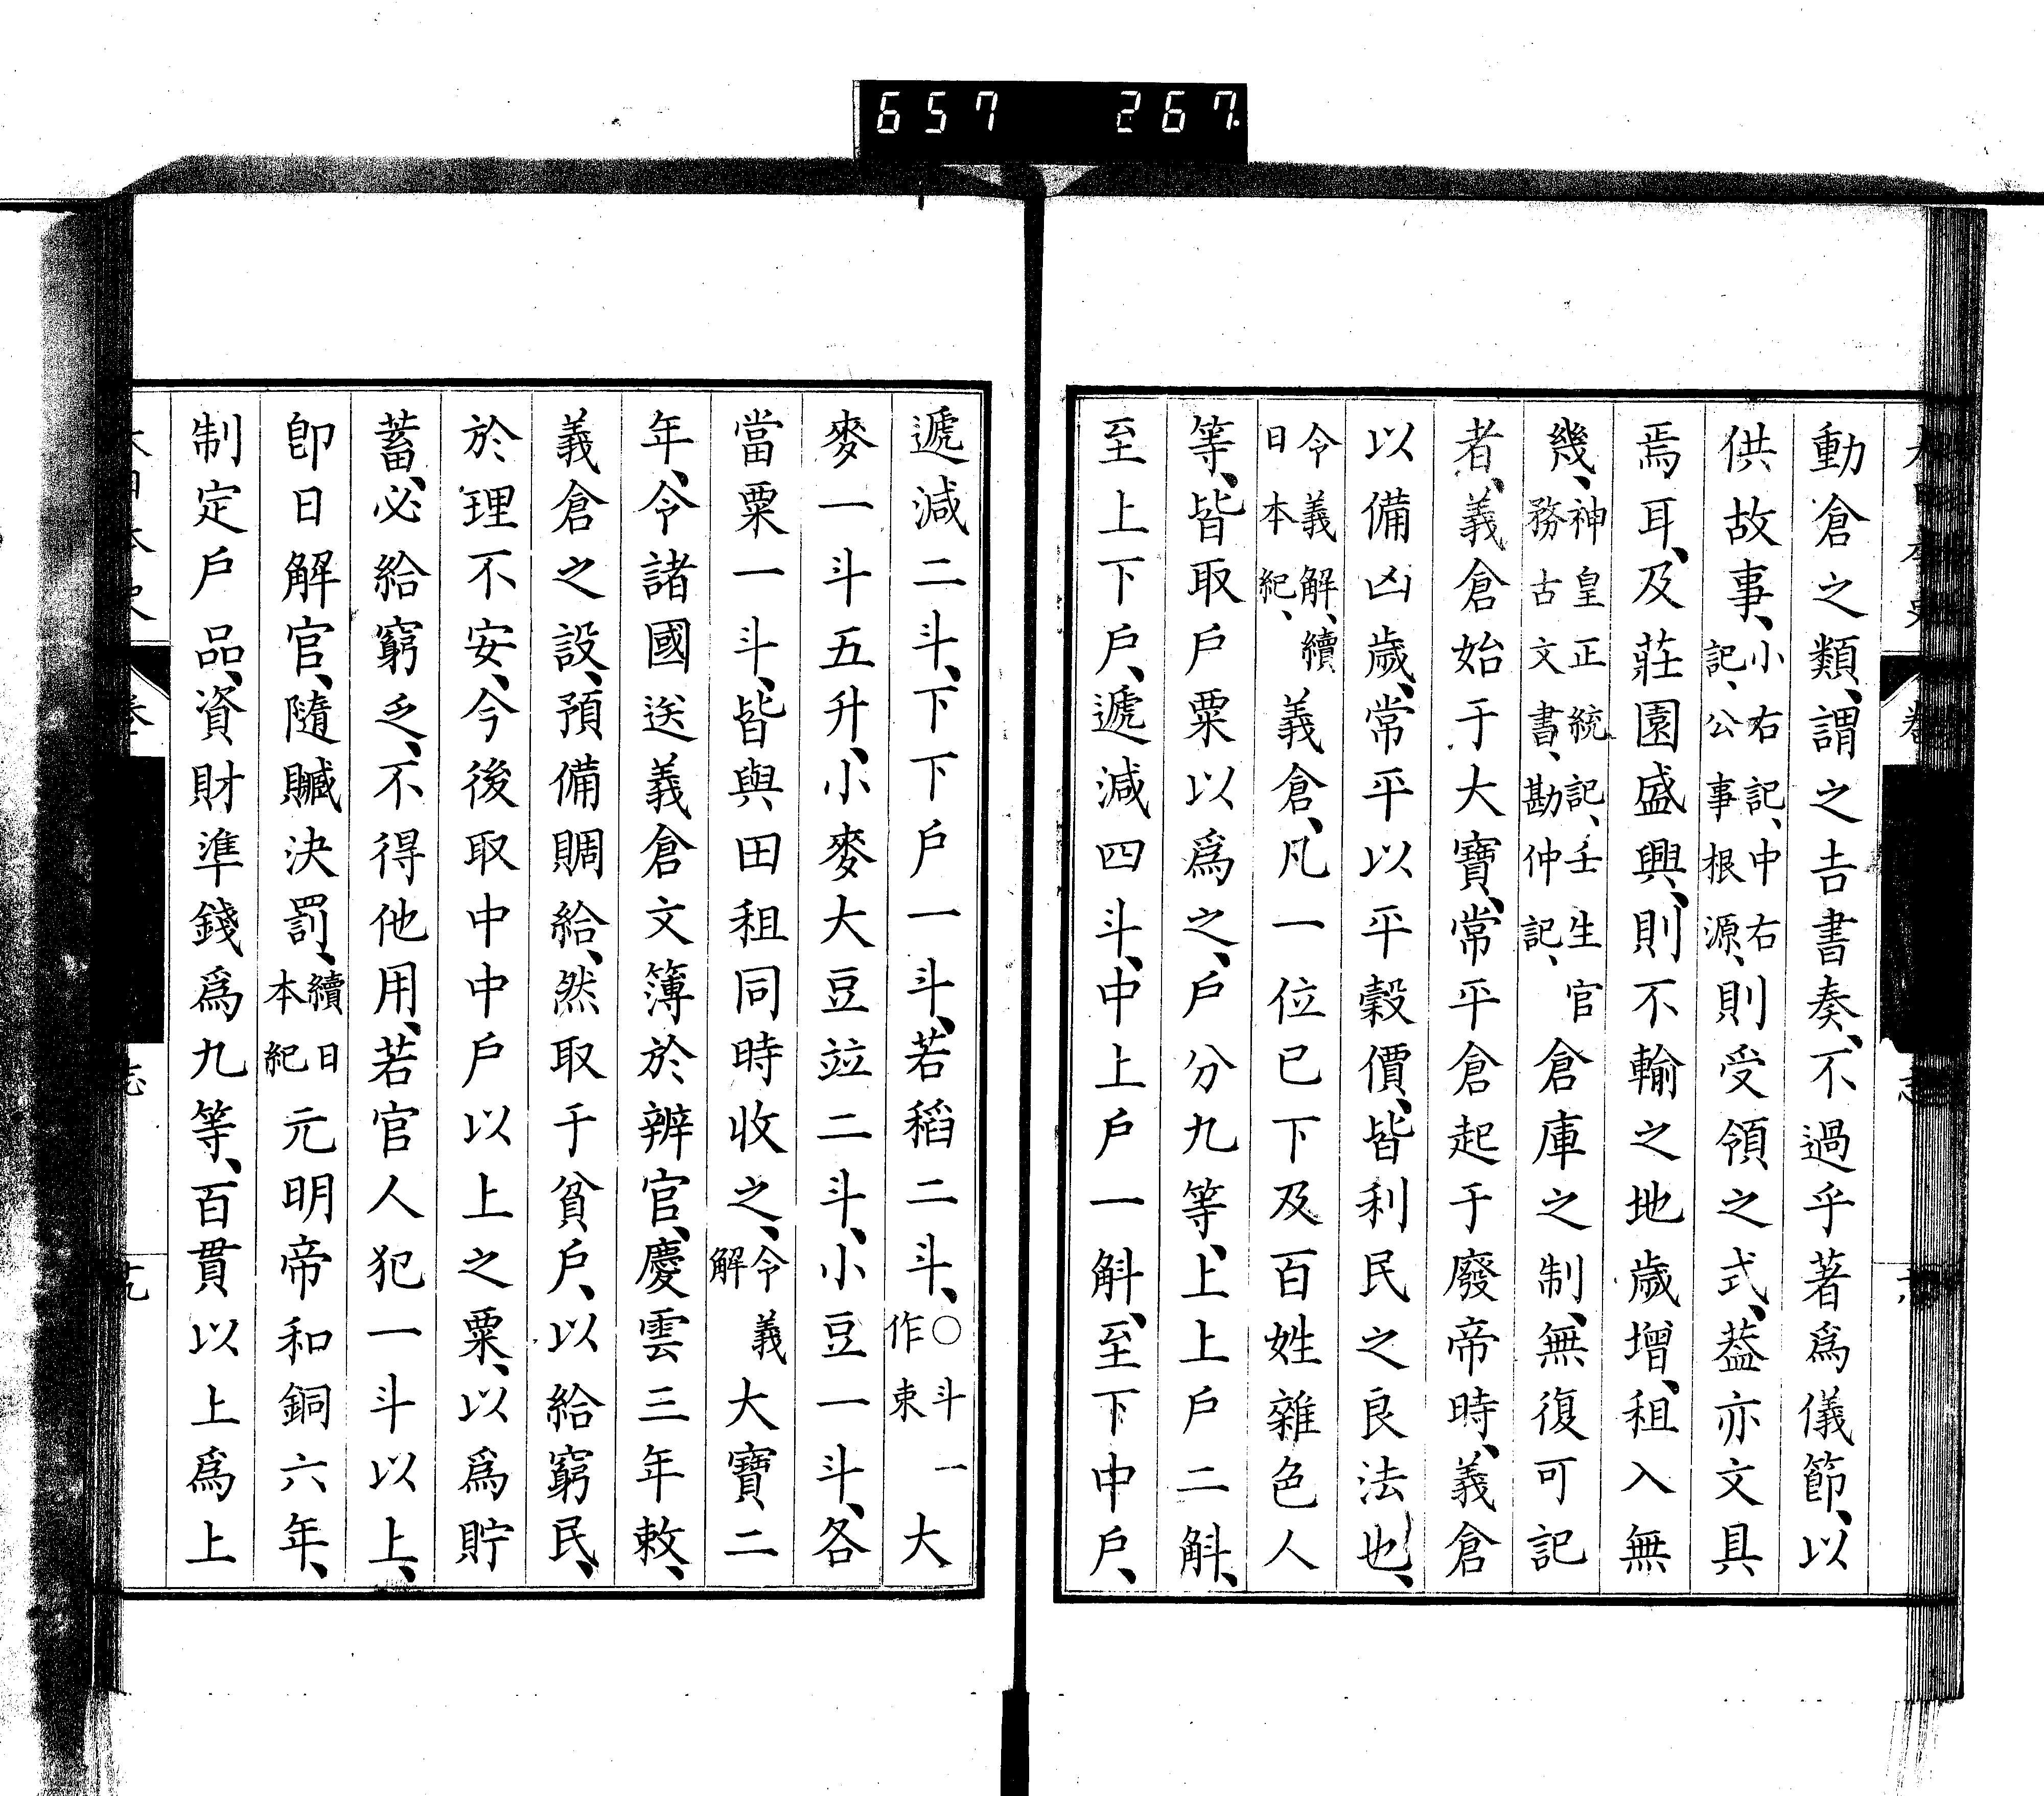 657 267
動倉之類、謂之吉書奏、不過乎著爲儀節、以
供故事、小右記、中右記、公事根源、則受領之式、葢亦文具
焉耳、及莊園盛興、則不輸之地歲增、租入無
幾、神皇正統記、壬生官務古文書、勘仲記、倉庫之制、無復可記
者、義倉始于大寶、常平倉起于廢帝時、義倉
以備凶歲、常平以平穀價、皆利民之良法也、
令義解、續日本紀、義倉、凡一位已下及百姓雜色人
等、皆取戶粟以爲之、戶分九等、上上戶二斛、
至上下戶、遞減四斗、中上戶一斛、至下中戶、
遞減二斗、下下戶一斗、若稻二斗、○斗一作束大
麥一斗五升、小麥大豆竝二斗、小豆一斗、各
當粟一斗、皆與田租同時收之、令義解大寶二
年、令諸國送義倉文簿於辨官、慶雲三年敕、
義倉之設、預備賙給、然取于貧戶、以給窮民、
於理不安、今後取中中戶以上之粟、以爲貯
蓄、必給窮乏、不得他用、若官人犯一斗以上、
卽日解官、隨贓決罰、續日本紀元明帝和銅六年、
制定戶品、資財準錢爲九等、百貫以上爲上